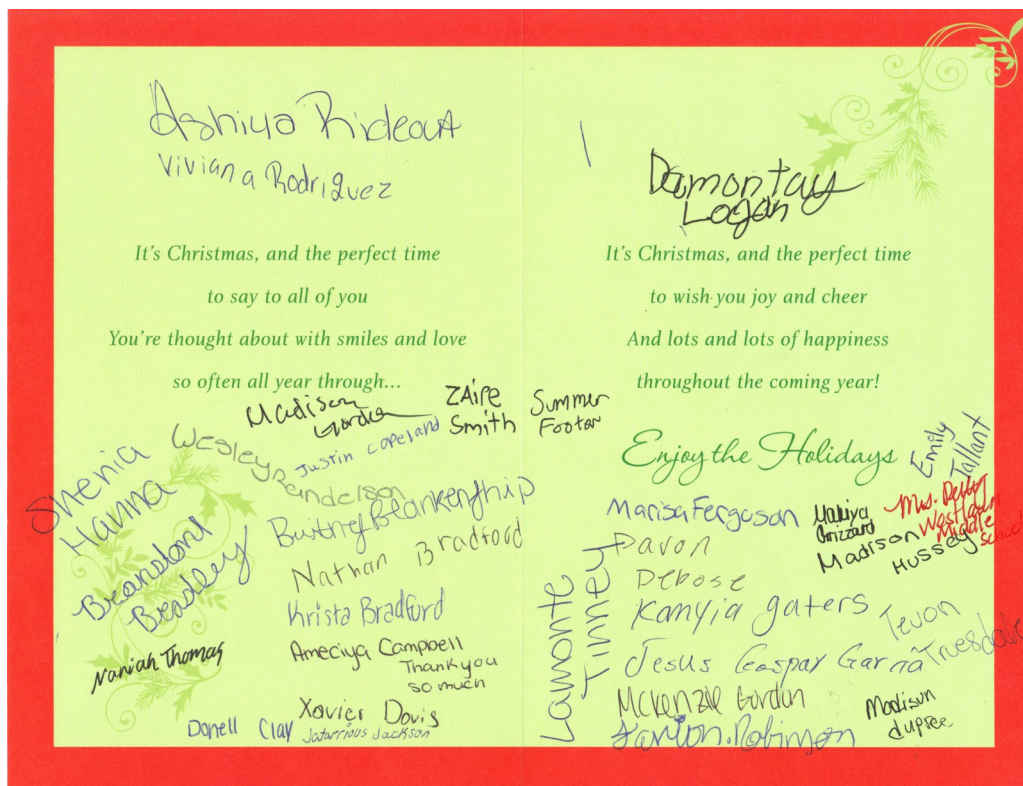 Ashiya Rideout
Viviana Rodriguez
It's Christmas, and the perfect time
to say to all of you
You're thought about with smiles and love
so often all year through...
Madison
Gordon
ZAire
Smith
Wesley
Justin Copeland
Shenia
Hanna
Blankenship
Breandand
Bradley
Nathan Bradford
Krista Bradford
Ameciya Campbell
Thank you
so much
Naniah Thomas
Xavier Davis
Donell Clay
Jatarrious Jackson
Damontay
Logan
It's Christmas, and the perfect time
to wish you joy and cheer
And lots and lots of happiness
throughout the coming year!
Summer
Footer
Enjoy the Holidays
Emily
Tallant
Marisa Ferguson
Makiya
Grizzard
Mrs. Petty
Westlawn
Middle
School
Madison
Hussey
Davon
Debose
Lamonte
Tinney
Kanyia gaters
Tevon
Truesdale
Jesus Gaspar Garcia
McKenzie Gordon
Madison
dupree
Robinson